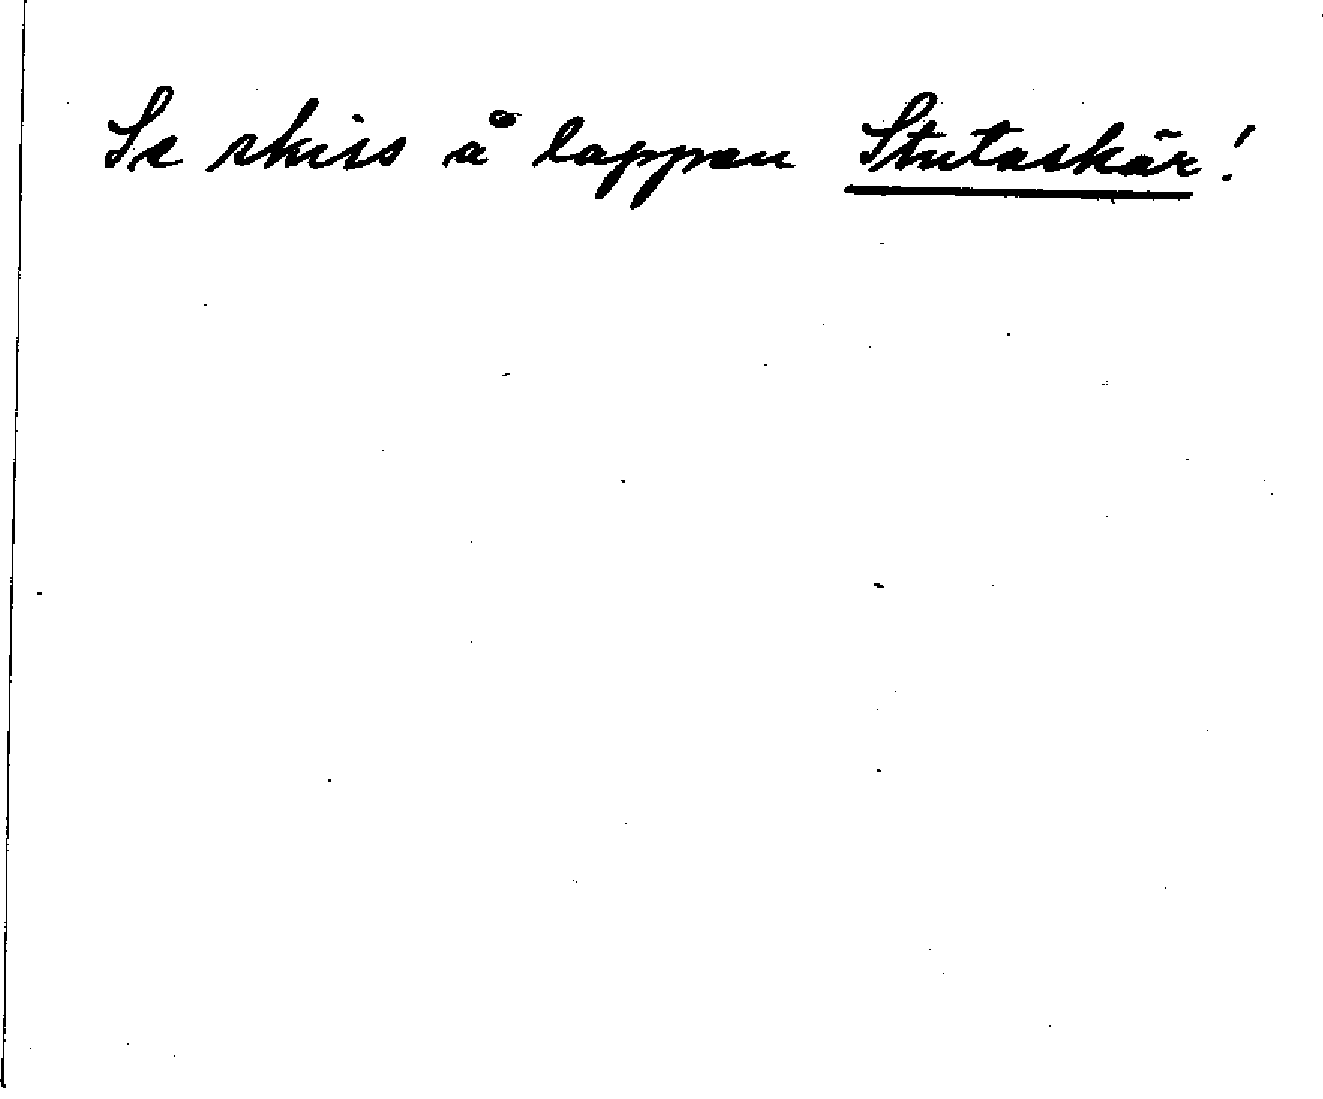 Se skiss å lappen Stutaskär!